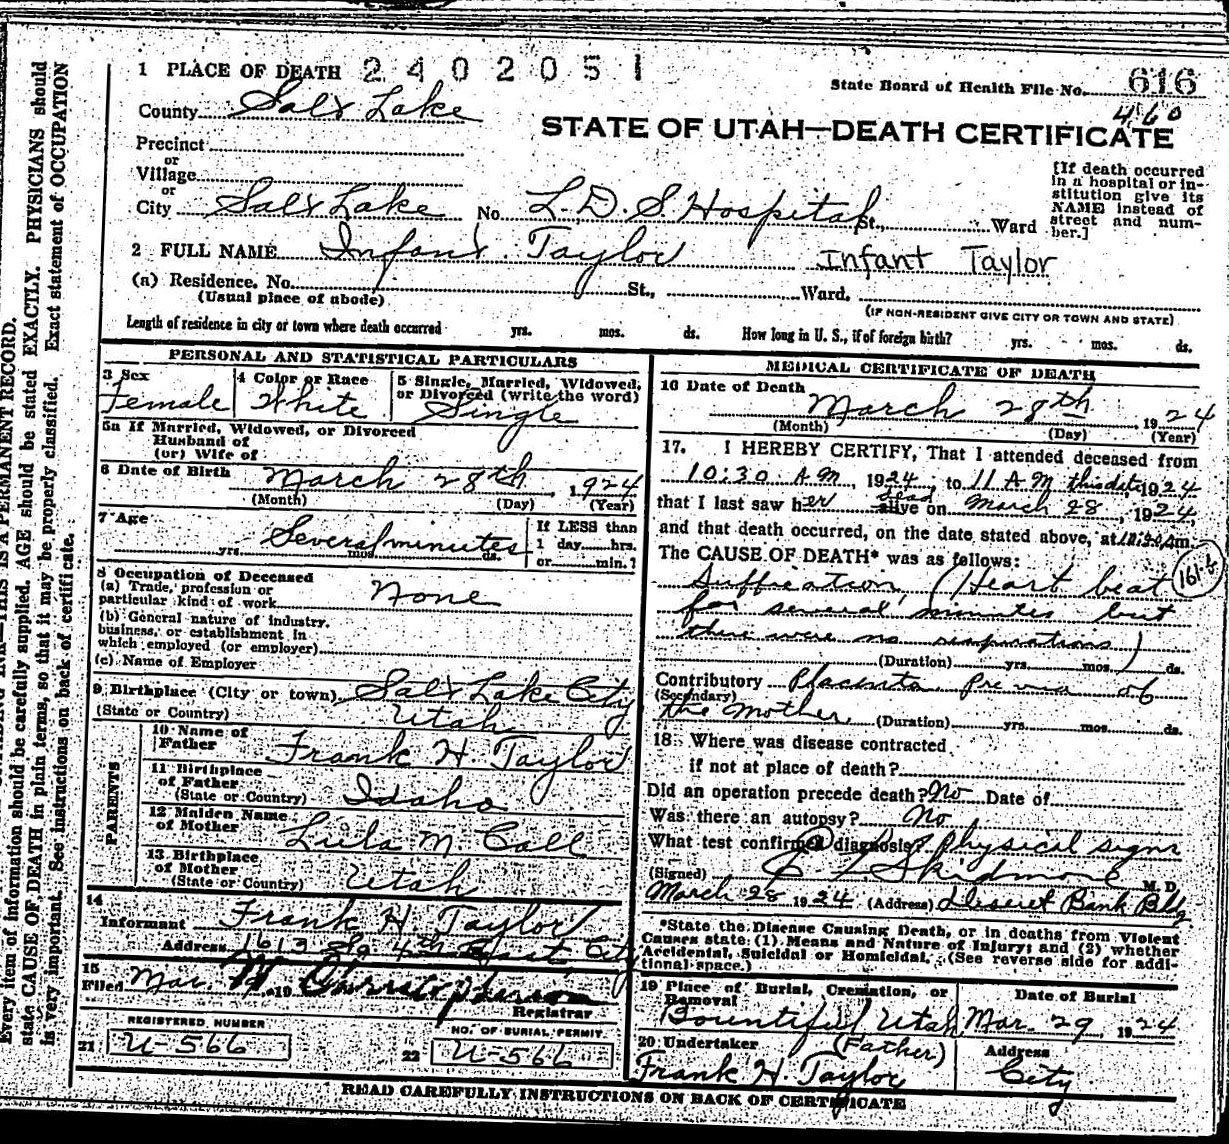 1 PLACE OF DEATH 2402051
State Board of Health File No. 616
460
County Salt Lake
STATE OF UTAH—DEATH CERTIFICATE
Precinct
or
Village
or
City Salt Lake No. L.D.S. Hospital St., Ward
[If death occurred
in a hospital or in-
stitution give its
NAME instead of
street and num-
ber.]
2 FULL NAME Infant Taylor Infant Taylor
(a) Residence. No. St., Ward.
(Usual place of abode)
(IF NON-RESIDENT GIVE CITY OR TOWN AND STATE)
Length of residence in city or town where death occurred yrs. mos. ds. How long in U. S., if of foreign birth? yrs. mos. ds.
PERSONAL AND STATISTICAL PARTICULARS
3 Sex
Female
4 Color or Race
White
5 Single, Married, Widowed,
or Divorced (write the word)
Single
5a If Married, Widowed, or Divorced
Husband of
(or) Wife of
6 Date of Birth March 28th, 1924
(Month) (Day) (Year)
7 Age
Several minutes
yrs. mos. ds.
If LESS than
1 day......hrs.
or......min.?
8 Occupation of Deceased
(a) Trade, profession or
particular kind of work None
(b) General nature of industry,
business, or establishment in
which employed (or employer)
(c) Name of Employer
9 Birthplace (City or town) Salt Lake City
(State or Country) Utah
PARENTS
10 Name of
Father Frank H. Taylor
11 Birthplace
of Father
(State or Country) Idaho
12 Maiden Name
of Mother Lula M. Call
13 Birthplace
of Mother
(State or Country) Utah
14
Informant Frank H. Taylor
Address 1613 So 4th East, City
15
Filed Mar. 19
Registrar
REGISTERED NUMBER
21 U-566
NO. OF BURIAL PERMIT
22 U-566
MEDICAL CERTIFICATE OF DEATH
16 Date of Death
March 28th 1924
(Month) (Day) (Year)
17. I HEREBY CERTIFY, That I attended deceased from
10:30 A.M. 1924, to 11 A.M this date 1924
that I last saw her dead alive on March 28, 1924,
and that death occurred, on the date stated above, at m.
The CAUSE OF DEATH* was as follows:
Suffocation, (Heart beat
161-b
for several minutes but
there were no respirations)
(Duration) yrs. mos. ds.
Contributory Placenta Previa of
(Secondary)
the Mother (Duration) yrs. mos. ds.
18. Where was disease contracted
if not at place of death?
Did an operation precede death? No Date of
Was there an autopsy? No
What test confirmed diagnosis? Physical signs
(Signed) Skidmore M. D.
March 28 1924 (Address) Deseret Bank Bldg
*State the Disease Causing Death, or in deaths from Violent
Causes state (1) Means and Nature of Injury; and (2) whether
Accidental, Suicidal or Homicidal. (See reverse side for addi-
tional space.)
19 Place of Burial, Cremation, or
Removal
Bountiful Utah
Date of Burial
Mar. 29 1924
20 Undertaker (Father)
Frank H. Taylor
Address
City
READ CAREFULLY INSTRUCTIONS ON BACK OF CERTIFICATE
THIS IS A PERMANENT RECORD.
Every item of information should be carefully supplied. AGE should be stated EXACTLY. PHYSICIANS should
state CAUSE OF DEATH in plain terms, so that it may be properly classified. Exact statement of OCCUPATION
is very important. See instructions on back of certificate.